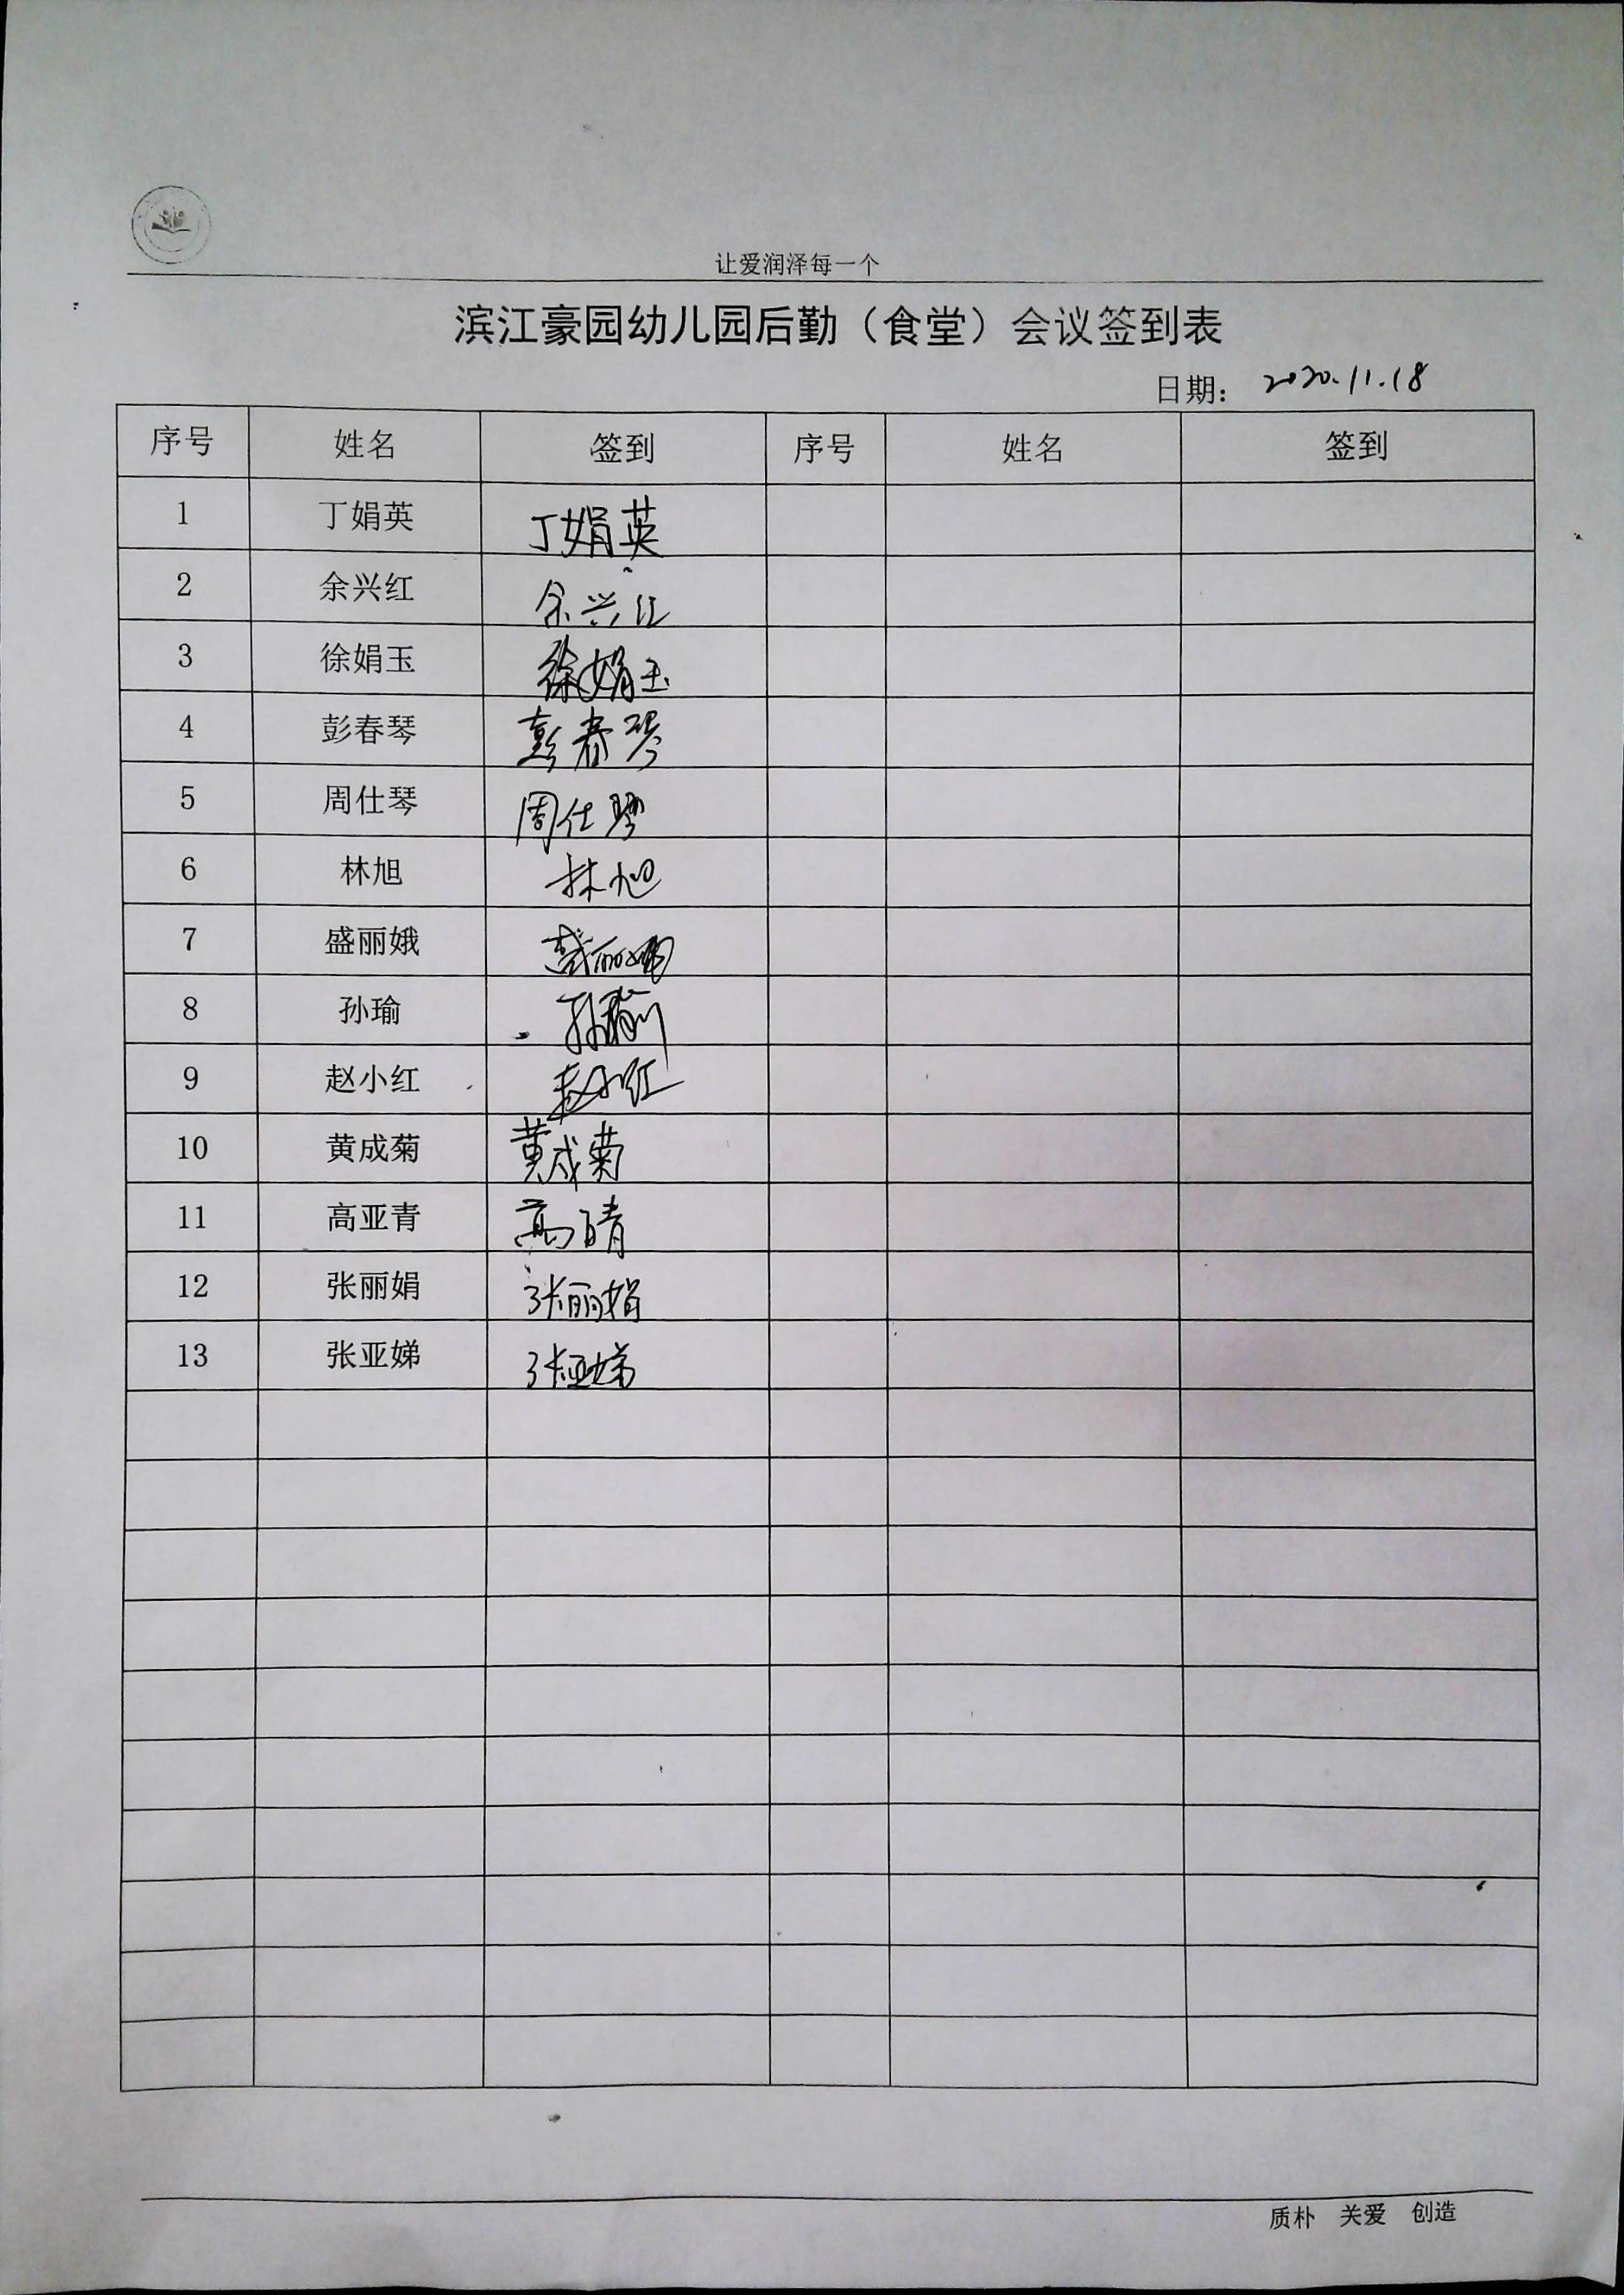 让爱润泽每一个
滨江豪园幼儿园后勤（食堂）会议签到表
日期： 2020.11.18
序号 姓名 签到 序号 姓名 签到
1 丁娟英 丁娟英
2 余兴红 余兴红
3 徐娟玉 徐娟玉
4 彭春琴 彭春琴
5 周仕琴 周仕琴
6 林旭 林旭
7 盛丽娥 盛丽娥
8 孙瑜 孙瑜
9 赵小红 赵小红
10 黄成菊 黄成菊
11 高亚青 高亚青
12 张丽娟 张丽娟
13 张亚娣 张亚娣
质朴 关爱 创造